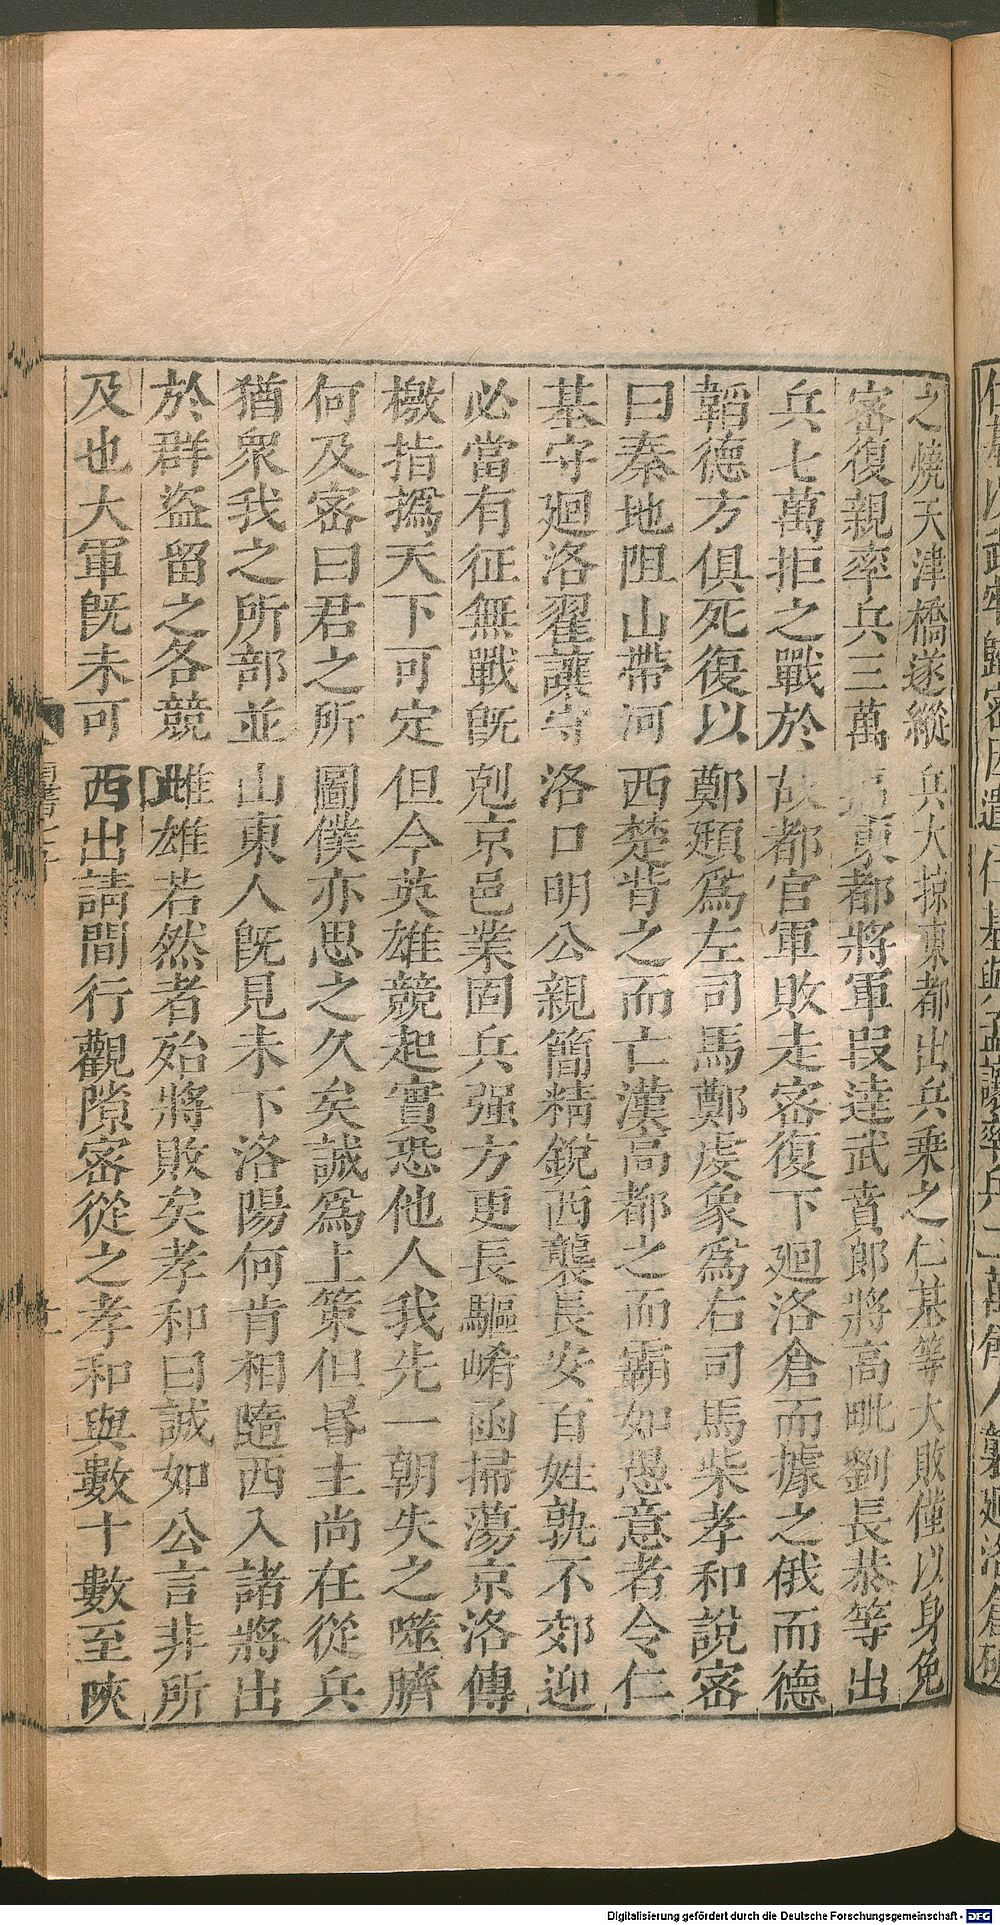 之燒天津橋遂縱兵大掠東都出兵乗之仁基等大敗僅以身免
密復親率兵三萬逼東都將軍叚達武賁郎將高毗劉長恭等出
兵七萬拒之戰於故都官軍敗走密復下廻洛倉而據之俄而德
韜德方俱死復以鄭頲爲左司馬鄭虔象爲右司馬柴孝和說密
曰秦地阻山帶河西楚背之而亡漢高都之而霸如愚意者令仁
基守廻洛翟讓守洛口明公親簡精銳西襲長安百姓孰不郊迎
必當有征無戰旣剋京邑業固兵强方更長驅崤函掃蕩京洛傳
檄指撝天下可定但今英雄競起實恐他人我先一朝失之噬臍
何及密曰君之所圖僕亦思之久矣誠爲上策但昬主尚在從兵
猶衆我之所部並山東人旣見未下洛陽何肯相隨西入諸將出
於群盜留之各競雌雄若然者殆將敗矣孝和曰誠如公言非所
及也大軍旣未可西出請間行觀隙密從之孝和與數十數至陝
Digitalisierung gefördert durch die Deutsche Forschungsgemeinschaft - DFG